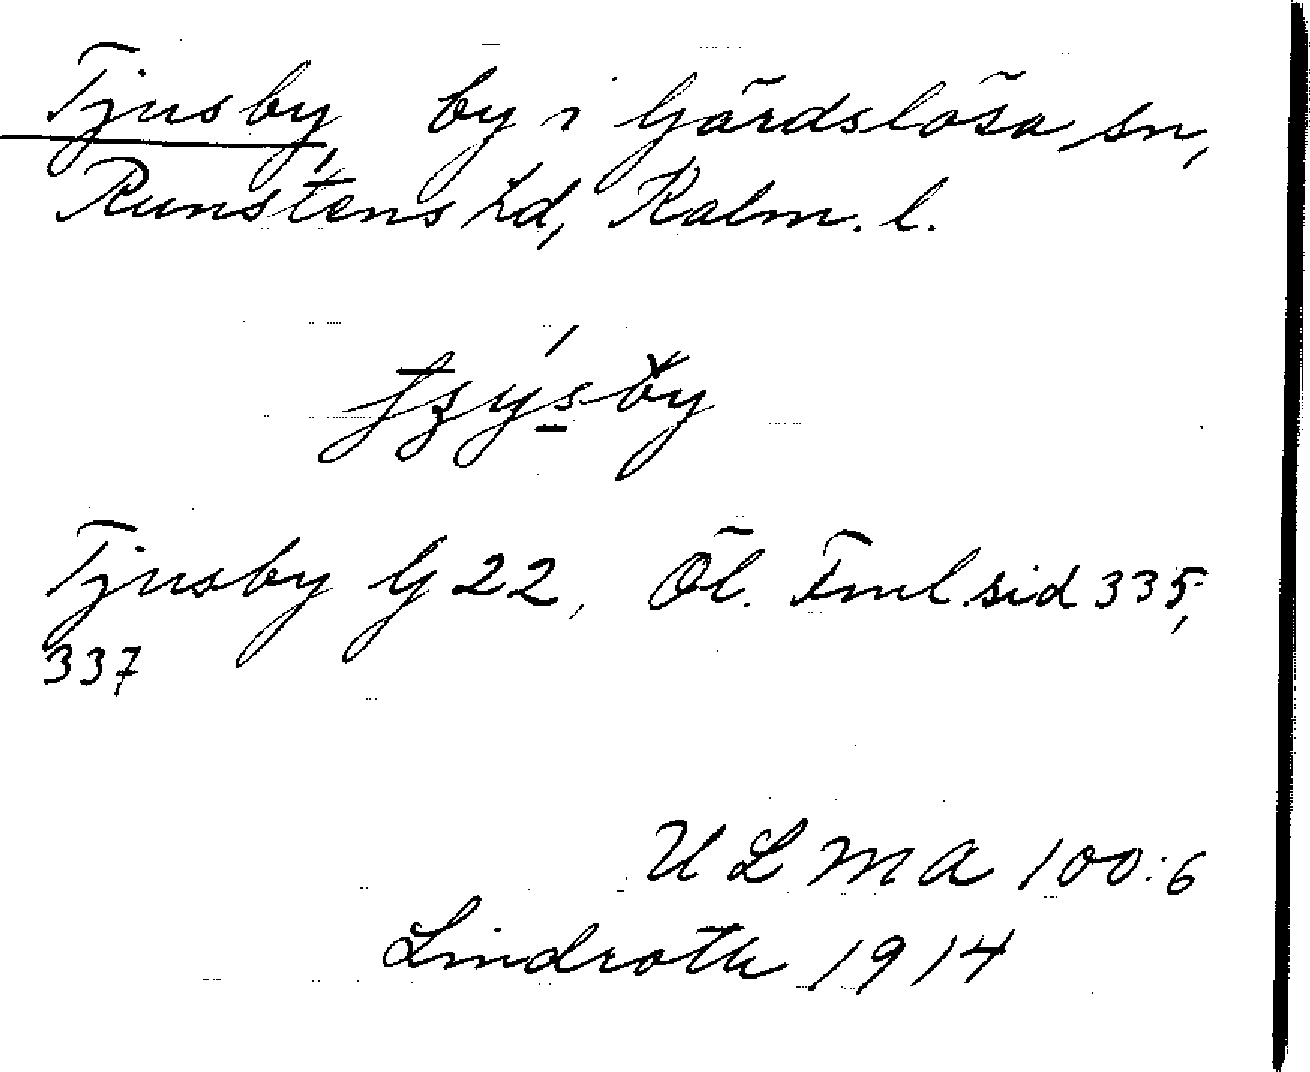 Tjusby by i Gärdslösa sn,
Runstens hd, Kalm. l.
Tjusby G 22, Öl. Fml. sid 335,
337
ULMA 100:6
Lindroth 1914